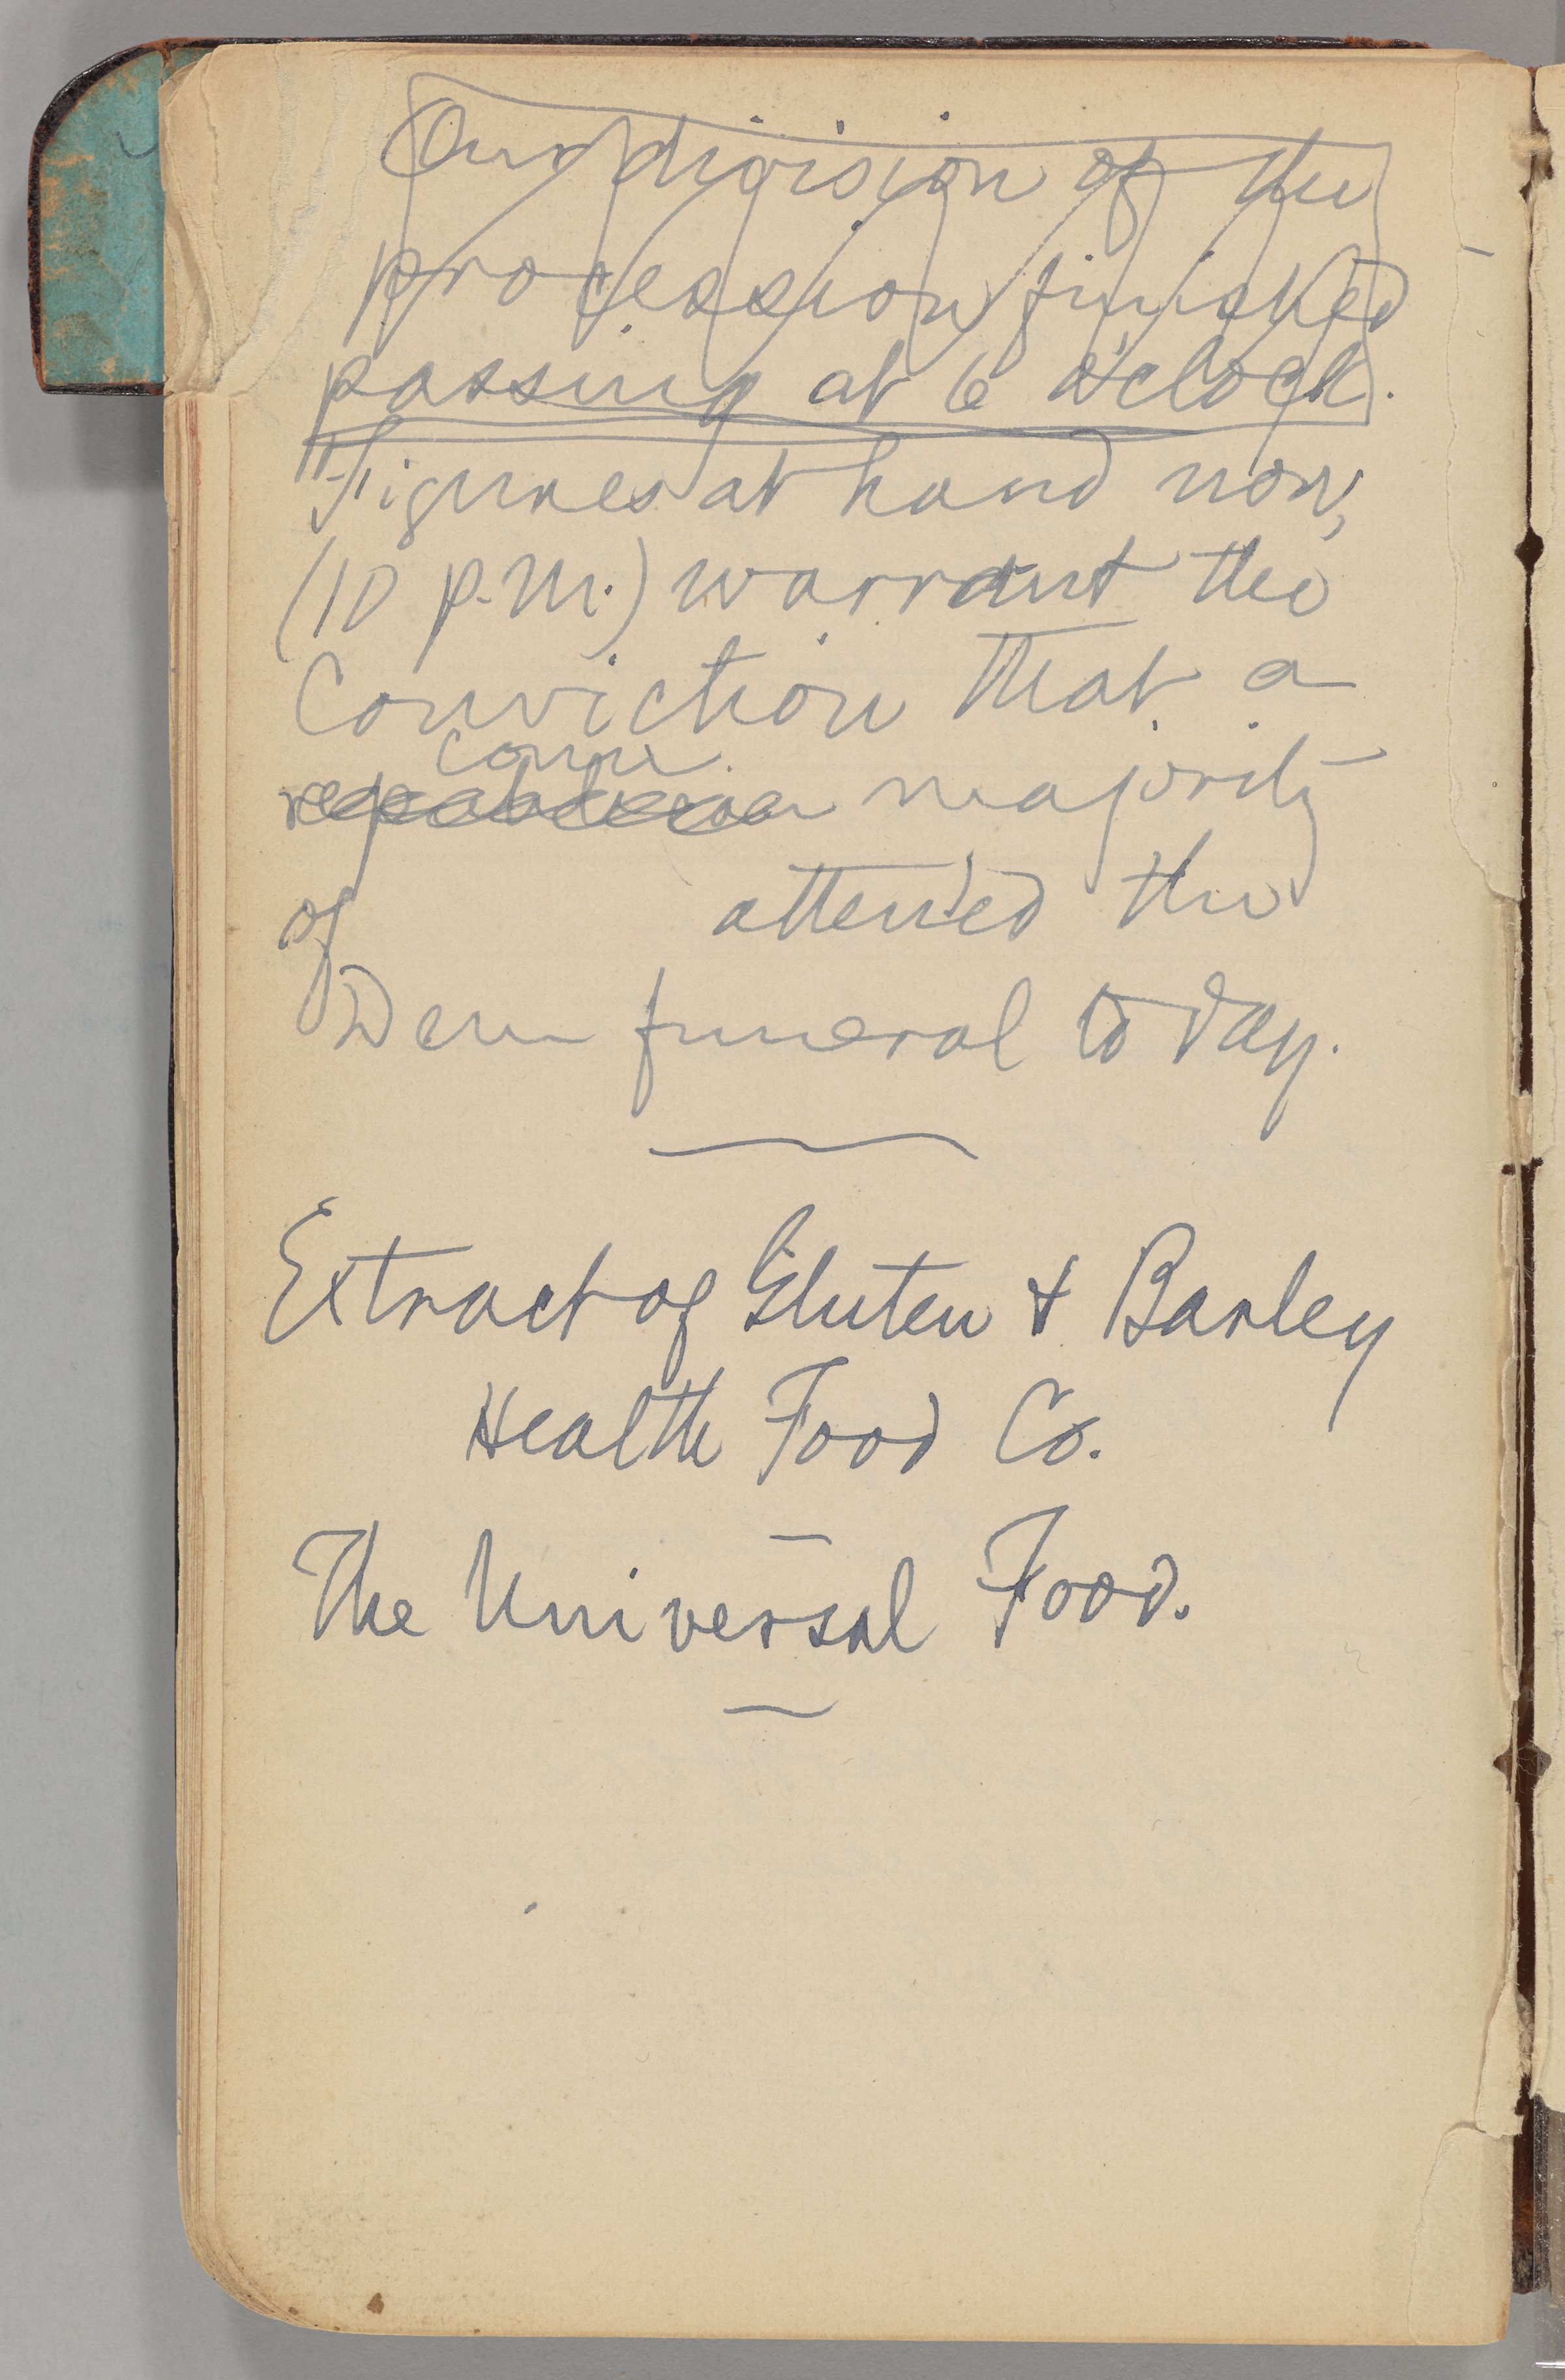 Our division of the
procession finished
passing at 6 o'clock.
Figures at hand now,
(10 p.m.) warrant the
Conviction that a
Conn.
republican majority
of attended the
Dem funeral to day.
Extract of Gluten & Barley
Health Food Co.
The Universal Food.